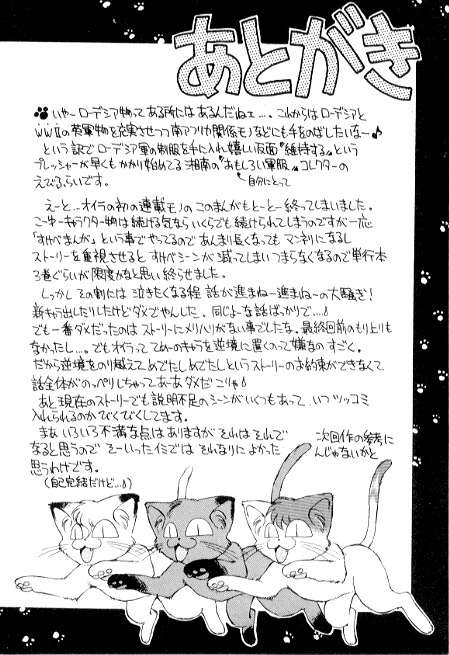 あとがき
いやーローデシア物ってある所にはあるんだねェ…。これからはローデシアと
WWⅡの英軍物を充実させつつ南アフリカ関係モノなどにも手をのばしたいなー♪
という訳でローデシア軍の制服を手に入れ嬉しい反面"維持する"という
プレッシャーが早くもかかり始めてる湘南の"おもしろい軍服"コレクターの
えびふらいです。
自分にとって
えーと…オイラの初の連載モノのこのまんがもとーとー終ってしまいました。
こーゆーキャラクター物は続ける気ならいくらでも続けられてしまうのですが一応
「すけべまんが」という事でやってるのであんまり長くなってもマンネリになるし
ストーリーを重視させるとすけべシーンが減ってしまいつまらなくなるので単行本
3巻ぐらいが限度かなと思い終らせました。
しっかしその割には泣きたくなる程話が進まねー進まねーの大騒ぎ!
新キャラ出たりしたけどダメでやんした。同じよーな話ばっかりで…♪
でも一番ダメだったのはストーリーにメリハリがない事でしたな。最終回前のもり上りも
なかったし…。でもオイラっててめーのキャラを逆境に置くのって嫌なのすごく。
だから逆境をのり越えてめでたしめでたしというストーリーのお約束ができなくて
話全体がのっぺりしちゃってあーあダメだこりゃ♪
あと現在のストーリーでも説明不足のシーンがいくつもあって、いつツッコミ
入れられるのかびくびくしてます。
まあいろいろ不満な点はありますがそれはそれで次回作の参考に
なると思うのでそーいったイミではそれなりによかったんじゃないかと
思うわけです。
(自己完結だけど…♪)